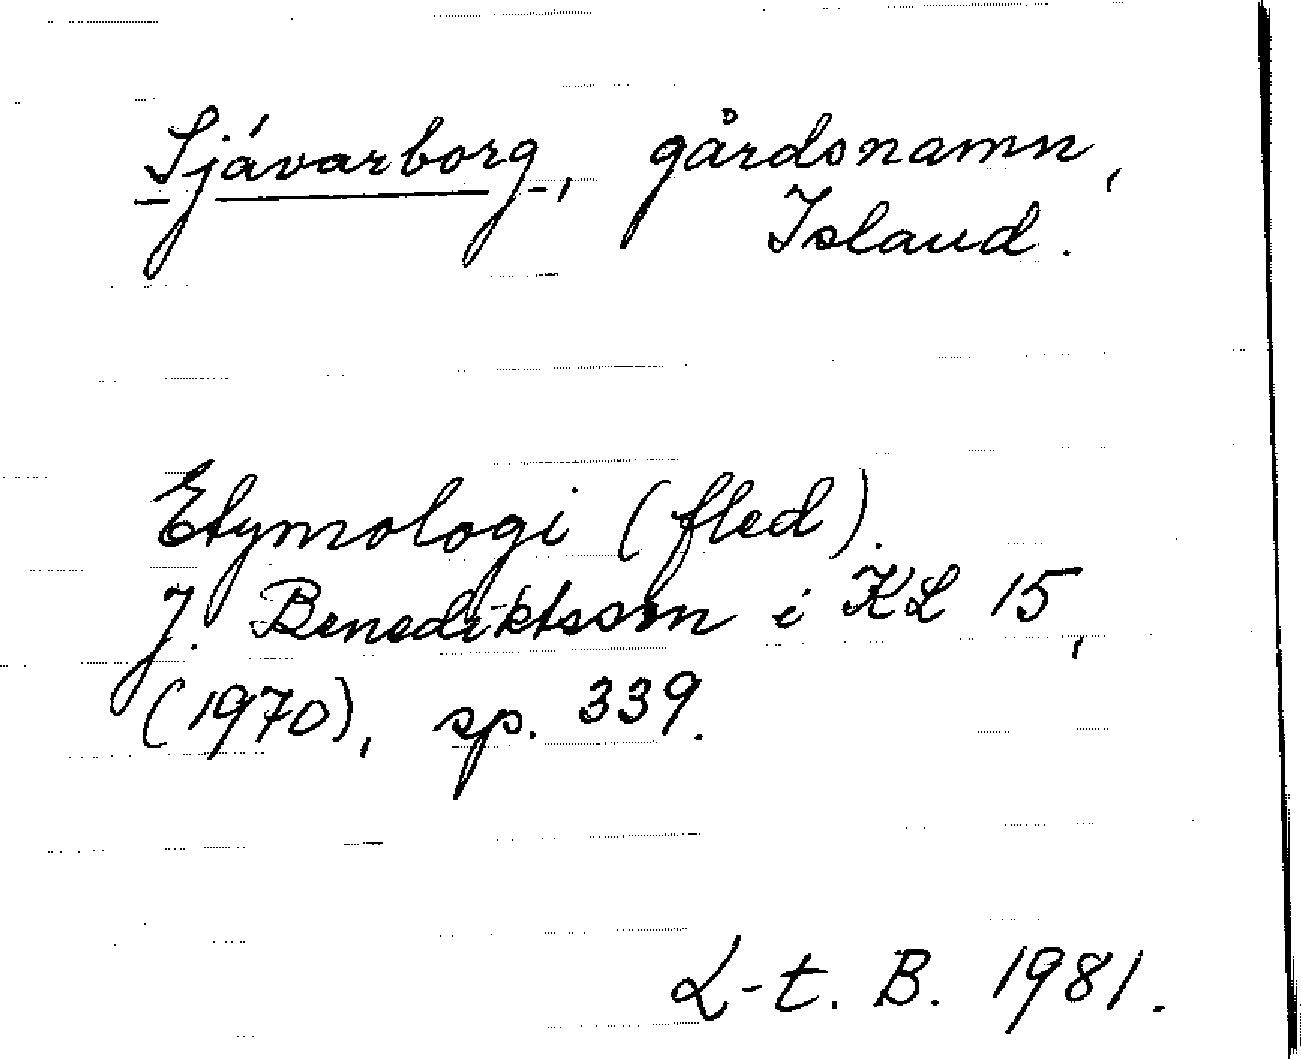 Sjávarborg, gårdsnamn,
Island.
Etymologi (fled).
J. Benediktsson i KL 15,
(1970), sp. 339.
L-t. B. 1981.